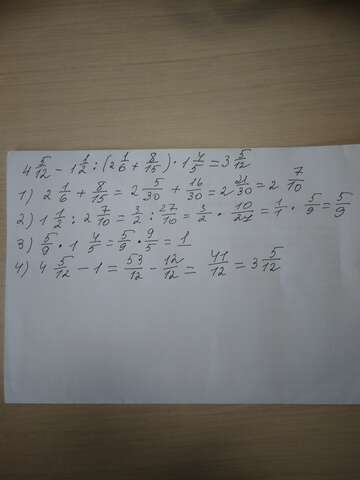 4 5/12 - 1 1/2 : (2 1/6 + 8/15) · 1 4/5 = 3 5/12
1) 2 1/6 + 8/15 = 2 5/30 + 16/30 = 2 21/30 = 2 7/10
2) 1 1/2 : 2 7/10 = 3/2 : 27/10 = 3/2 · 10/27 = 1/1 · 5/9 = 5/9
3) 5/9 · 1 4/5 = 5/9 · 9/5 = 1
4) 4 5/12 - 1 = 53/12 - 12/12 = 41/12 = 3 5/12